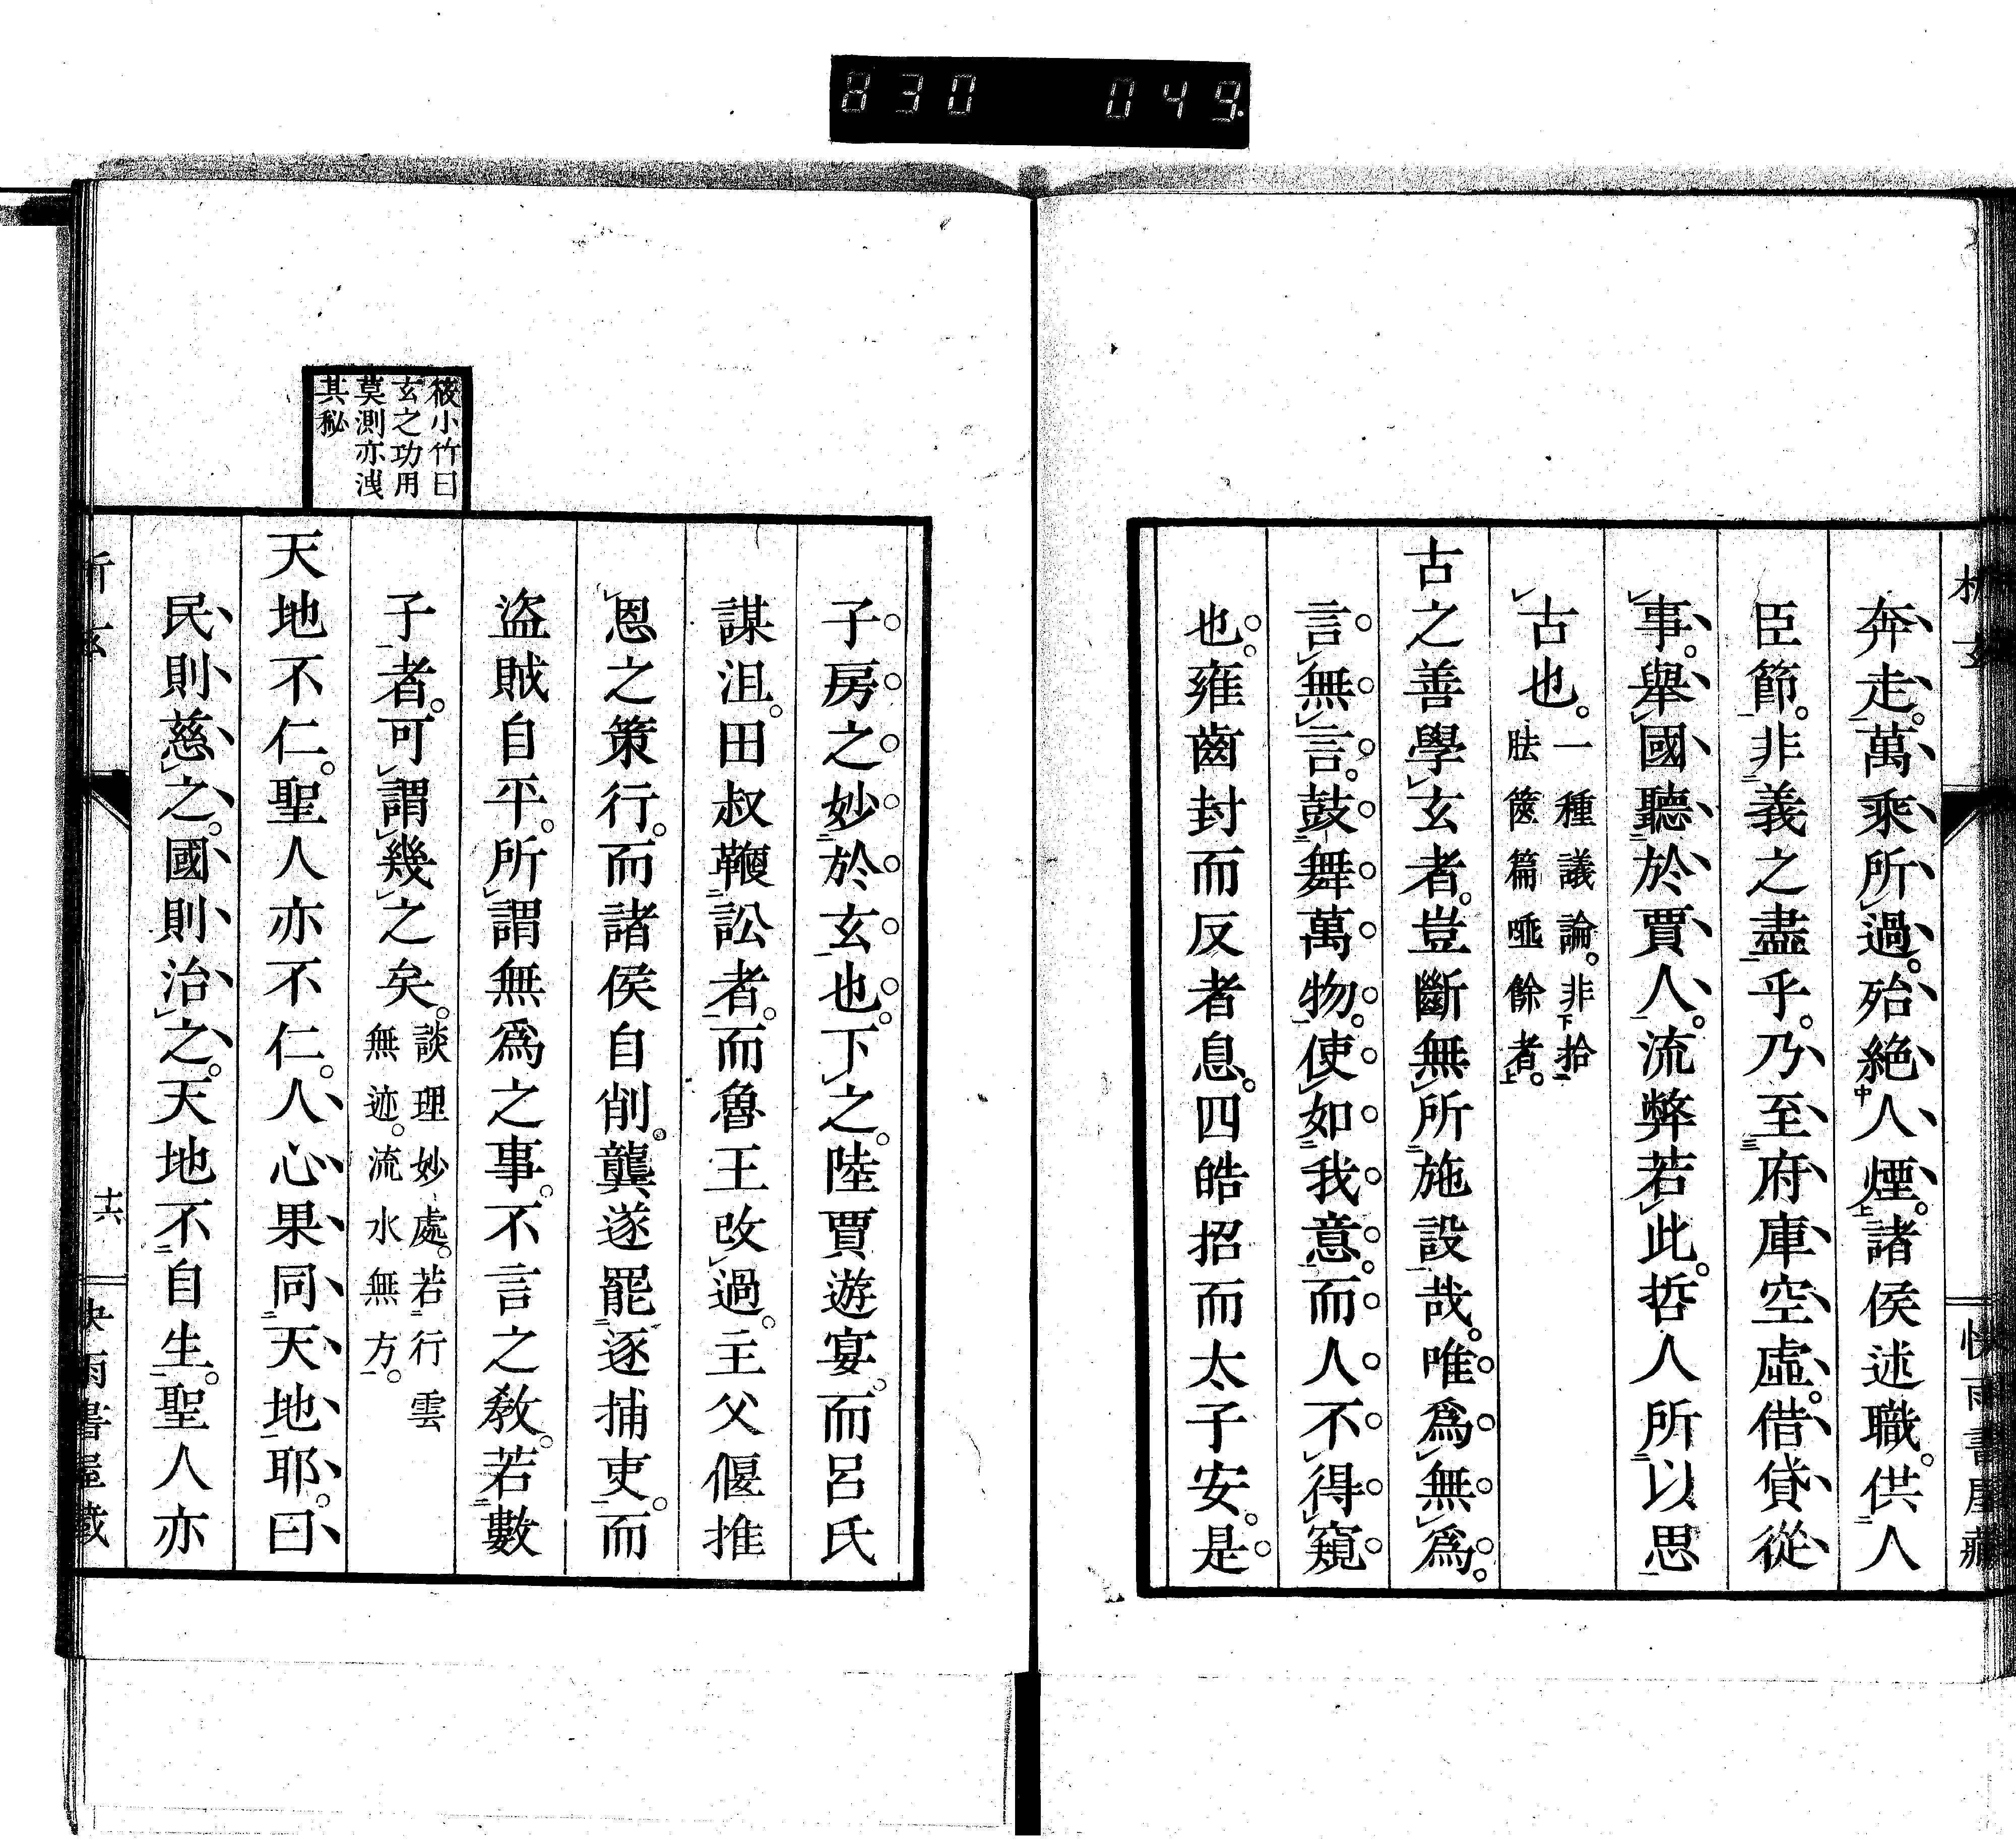 830 049
奔走。萬乘所過。殆絕人煙。諸侯述職。供人
臣節。非義之盡乎。乃至府庫空虛。借貸從
事。舉國聽於賈人。流弊若此。哲人所以思
古也。
一種議論。非拾
胠篋篇唾餘者。
古之善學玄者。豈斷無所施設哉。唯爲無爲。
言無言。鼓舞萬物。使如我意。而人不得窺
也。雍齒封而反者息。四皓招而太子安。是
子房之妙於玄也。下之。陸賈遊宴。而呂氏
謀沮。田叔鞭訟者。而魯王改過。主父偃推
恩之策行。而諸侯自削。龔遂罷逐捕吏。而
盜賊自平。所謂無爲之事。不言之敎。若數
子者。可謂幾之矣。
談理妙處。若行雲
無迹。流水無方。
天地不仁。聖人亦不仁。人心果同天地耶。曰
民則慈之。國則治之。天地不自生。聖人亦
筱小竹曰
玄之功用
莫測亦洩
其秘
析玄
十六
快雨書屋藏